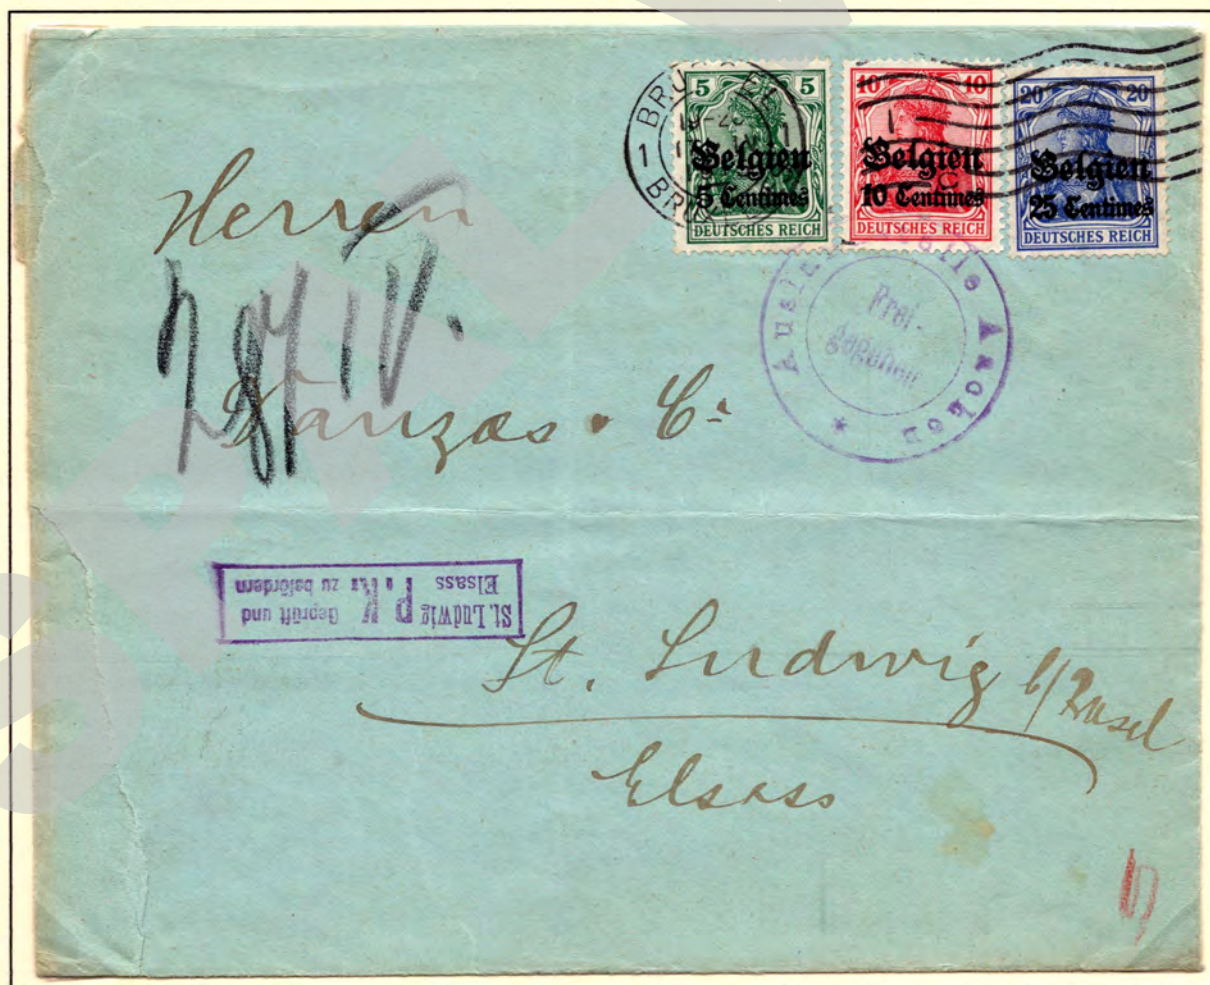 5 5
Belgien
5 Centimes
DEUTSCHES REICH
10 10
Belgien
10 Centimes
DEUTSCHES REICH
20 20
Belgien
25 Centimes
DEUTSCHES REICH
1 1
Herren
28/IV.
Danzas & Cº
Aachen
Frei-
gegeben
St. Ludwig P.K. Geprüft und
Elsass zu befördern
St. Ludwig b/Basel
Elsass